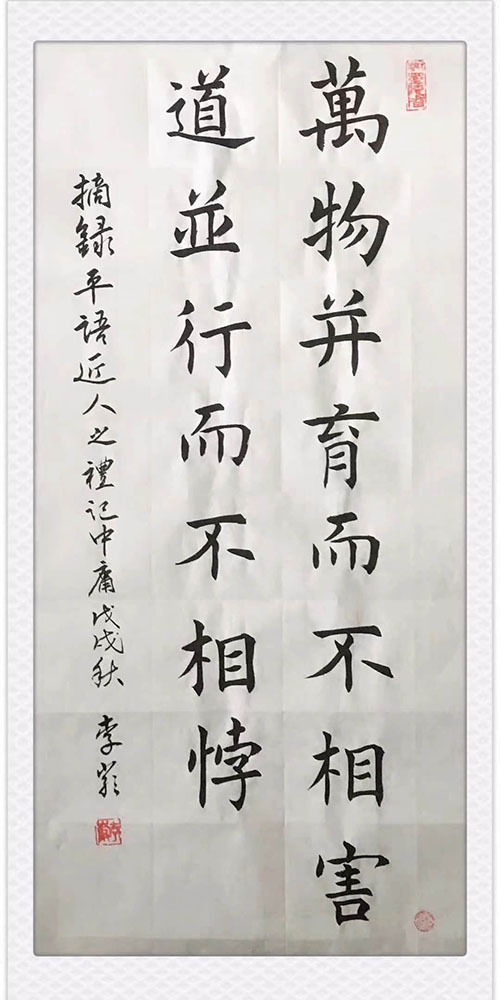 萬物并育而不相害
道並行而不相悖
摘録平語近人之禮記中庸戊戌秋 李